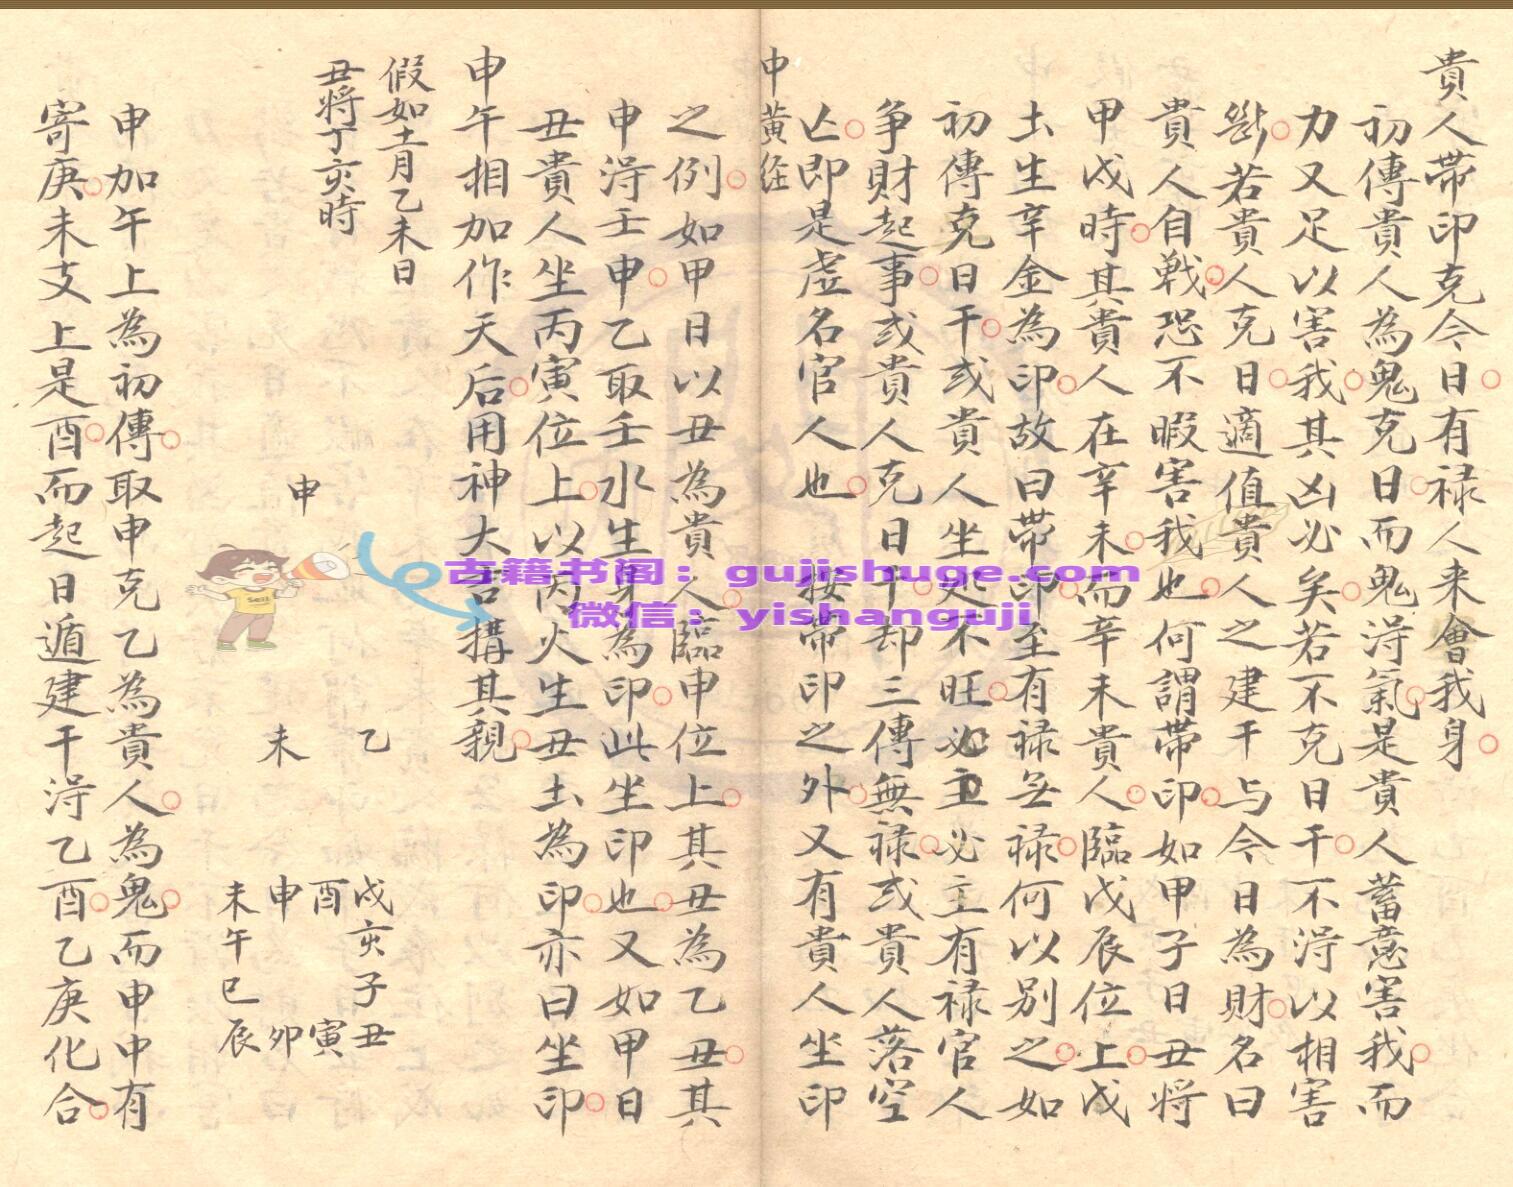 貴人帶印克今日有禄人来會我身
初傳貴人為鬼克日而鬼淂氣是貴人蓄意害我而
力又足以害我其凶必矣若不克日干不淂以相害
断若貴人克日適值貴人之建干与今日為財名曰
貴人自戦恐不暇害我也何謂帶印如甲子日丑將
甲戌時其貴人在辛未而辛未貴人臨戊辰位上戊
土生辛金為印故曰帶印至有禄无禄何以别之如
初傳克日干或貴人坐处不旺必主必主有禄官人
争財起事或貴人克日干却三傳無禄或貴人落空
亡即是虚名官人也 按帶印之外又有貴人坐印
申黄經
之例如甲日以丑為貴人臨申位上其丑為乙丑其
申淂壬申乙取壬水生身為印此坐印也又如甲日
丑貴人坐丙寅位上以丙火生丑土為印亦曰坐印
申午相加作天后用神大吉搆其親
假如十二月乙未日
丑將丁亥時
申
乙
未
戌亥子丑
酉 寅
申 卯
未午巳辰
申加午上為初傳取申克乙為貴人為鬼而申中有
寄庚未支上是酉而起日遁建干淂乙酉乙庚化合
古籍书阁：gujishuge.com
微信：yishanguji